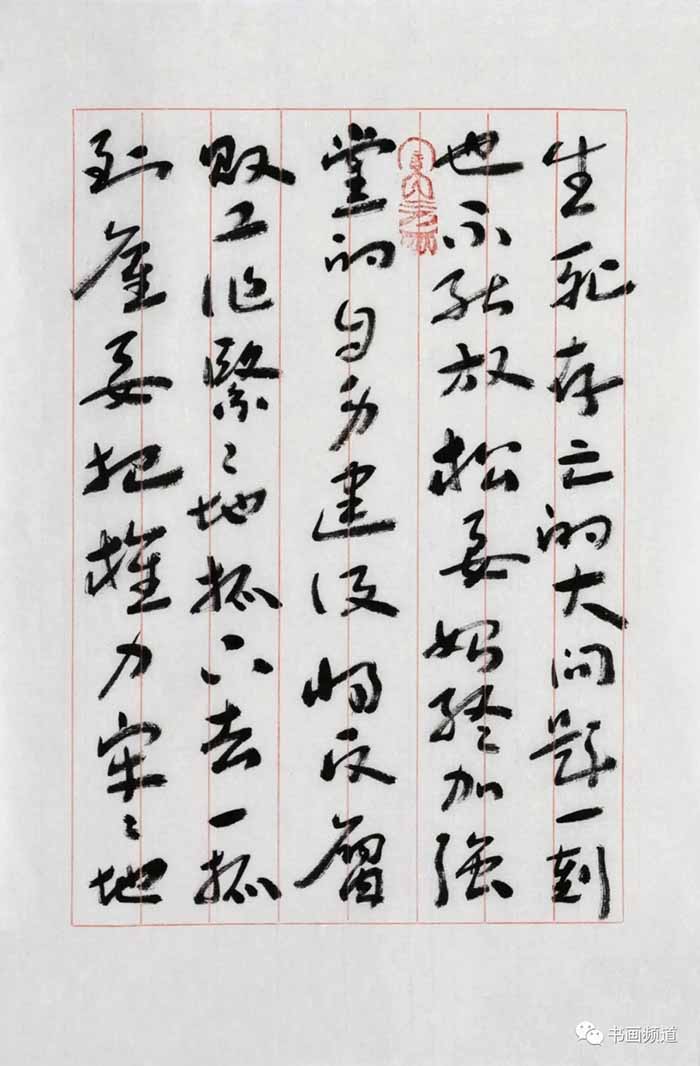 生死存亡的大问题一刻
也不能放松要始终加强
党的自身建设将反腐
败工作緊々地抓下去一抓
到底要把權力牢々地
书画频道